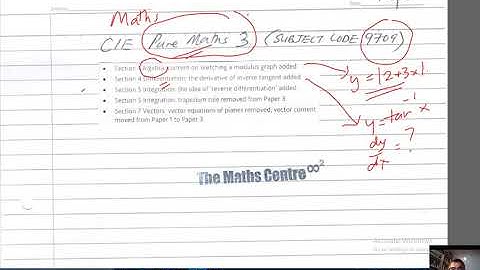 Maths
CIE Pure Maths 3 (SUBJECT CODE 9709)
Section 1 Algebra: content on sketching a modulus graph added
y = |2+3x|
Section 4 Differentiation: the derivative of inverse tangent added
Section 5 Integration: the idea of 'reverse differentiation' added
Section 5 Integration: trapezium rule removed from Paper 3
y = tan⁻¹ x
Section 7 Vectors: vector equation of planes removed, vector content
moved from Paper 1 to Paper 3
dy/dx = ?
The Maths Centre ∞²
Activate Windows